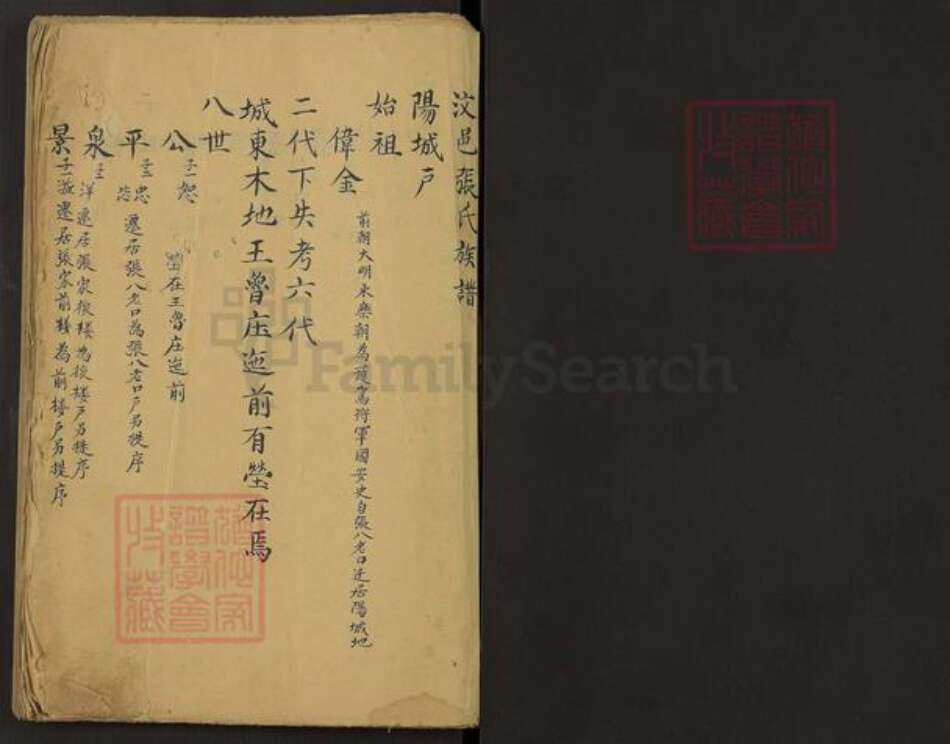 汶邑張氏族譜
陽城戶
始祖
偉金 前朝大明永樂朝為 將軍國 史自張八老口迁居陽城地
二代下失考六代
城東木地王魯庄迤前有塋在焉
八世
公 子一恕 塋在王魯庄迤前
平 子二忠 恣 遷居張八老口為張八老口戶另提序
泉 子一洋遷居張家後楼為後楼戶另提序
景 子一 遷居張家前楼為前楼戶另提序
FamilySearch